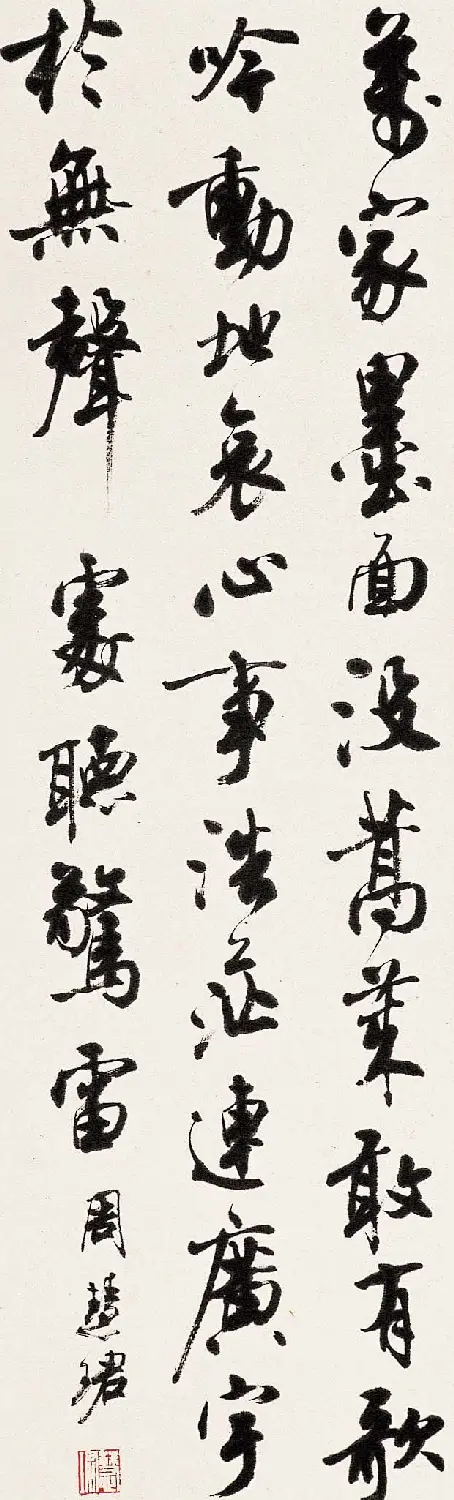 萬家墨面没蒿萊敢有歌
吟動地哀心事浩茫連廣宇
於無聲處聽驚雷
周慧珺